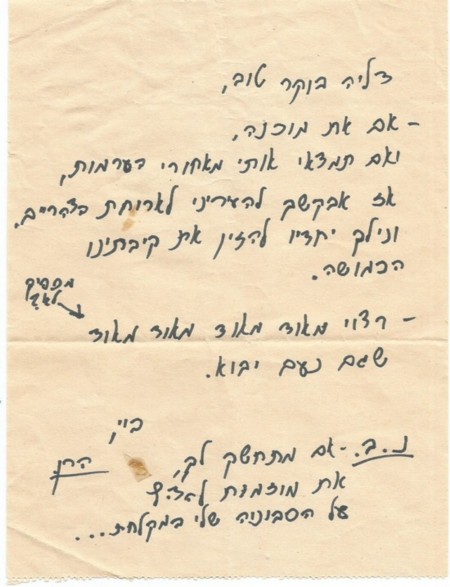 דליה בוקר טוב,
- אם את מוכנה,
ואם תמצאי אותי מאחורי הערמות,
אז אבקשך להעירני לארוחת הצהריים.
ונילך יחדיו להזין את קיבתינו
הכמושה.
מספיק
לאה?
- רצוי מאוד מאוד מאוד מאוד
שגם נעם יבוא.
ביי,
הרן
נ.ב. - אם מתחשק לך,
את מוזמנת
על הסבוניה שלי במקלחת...